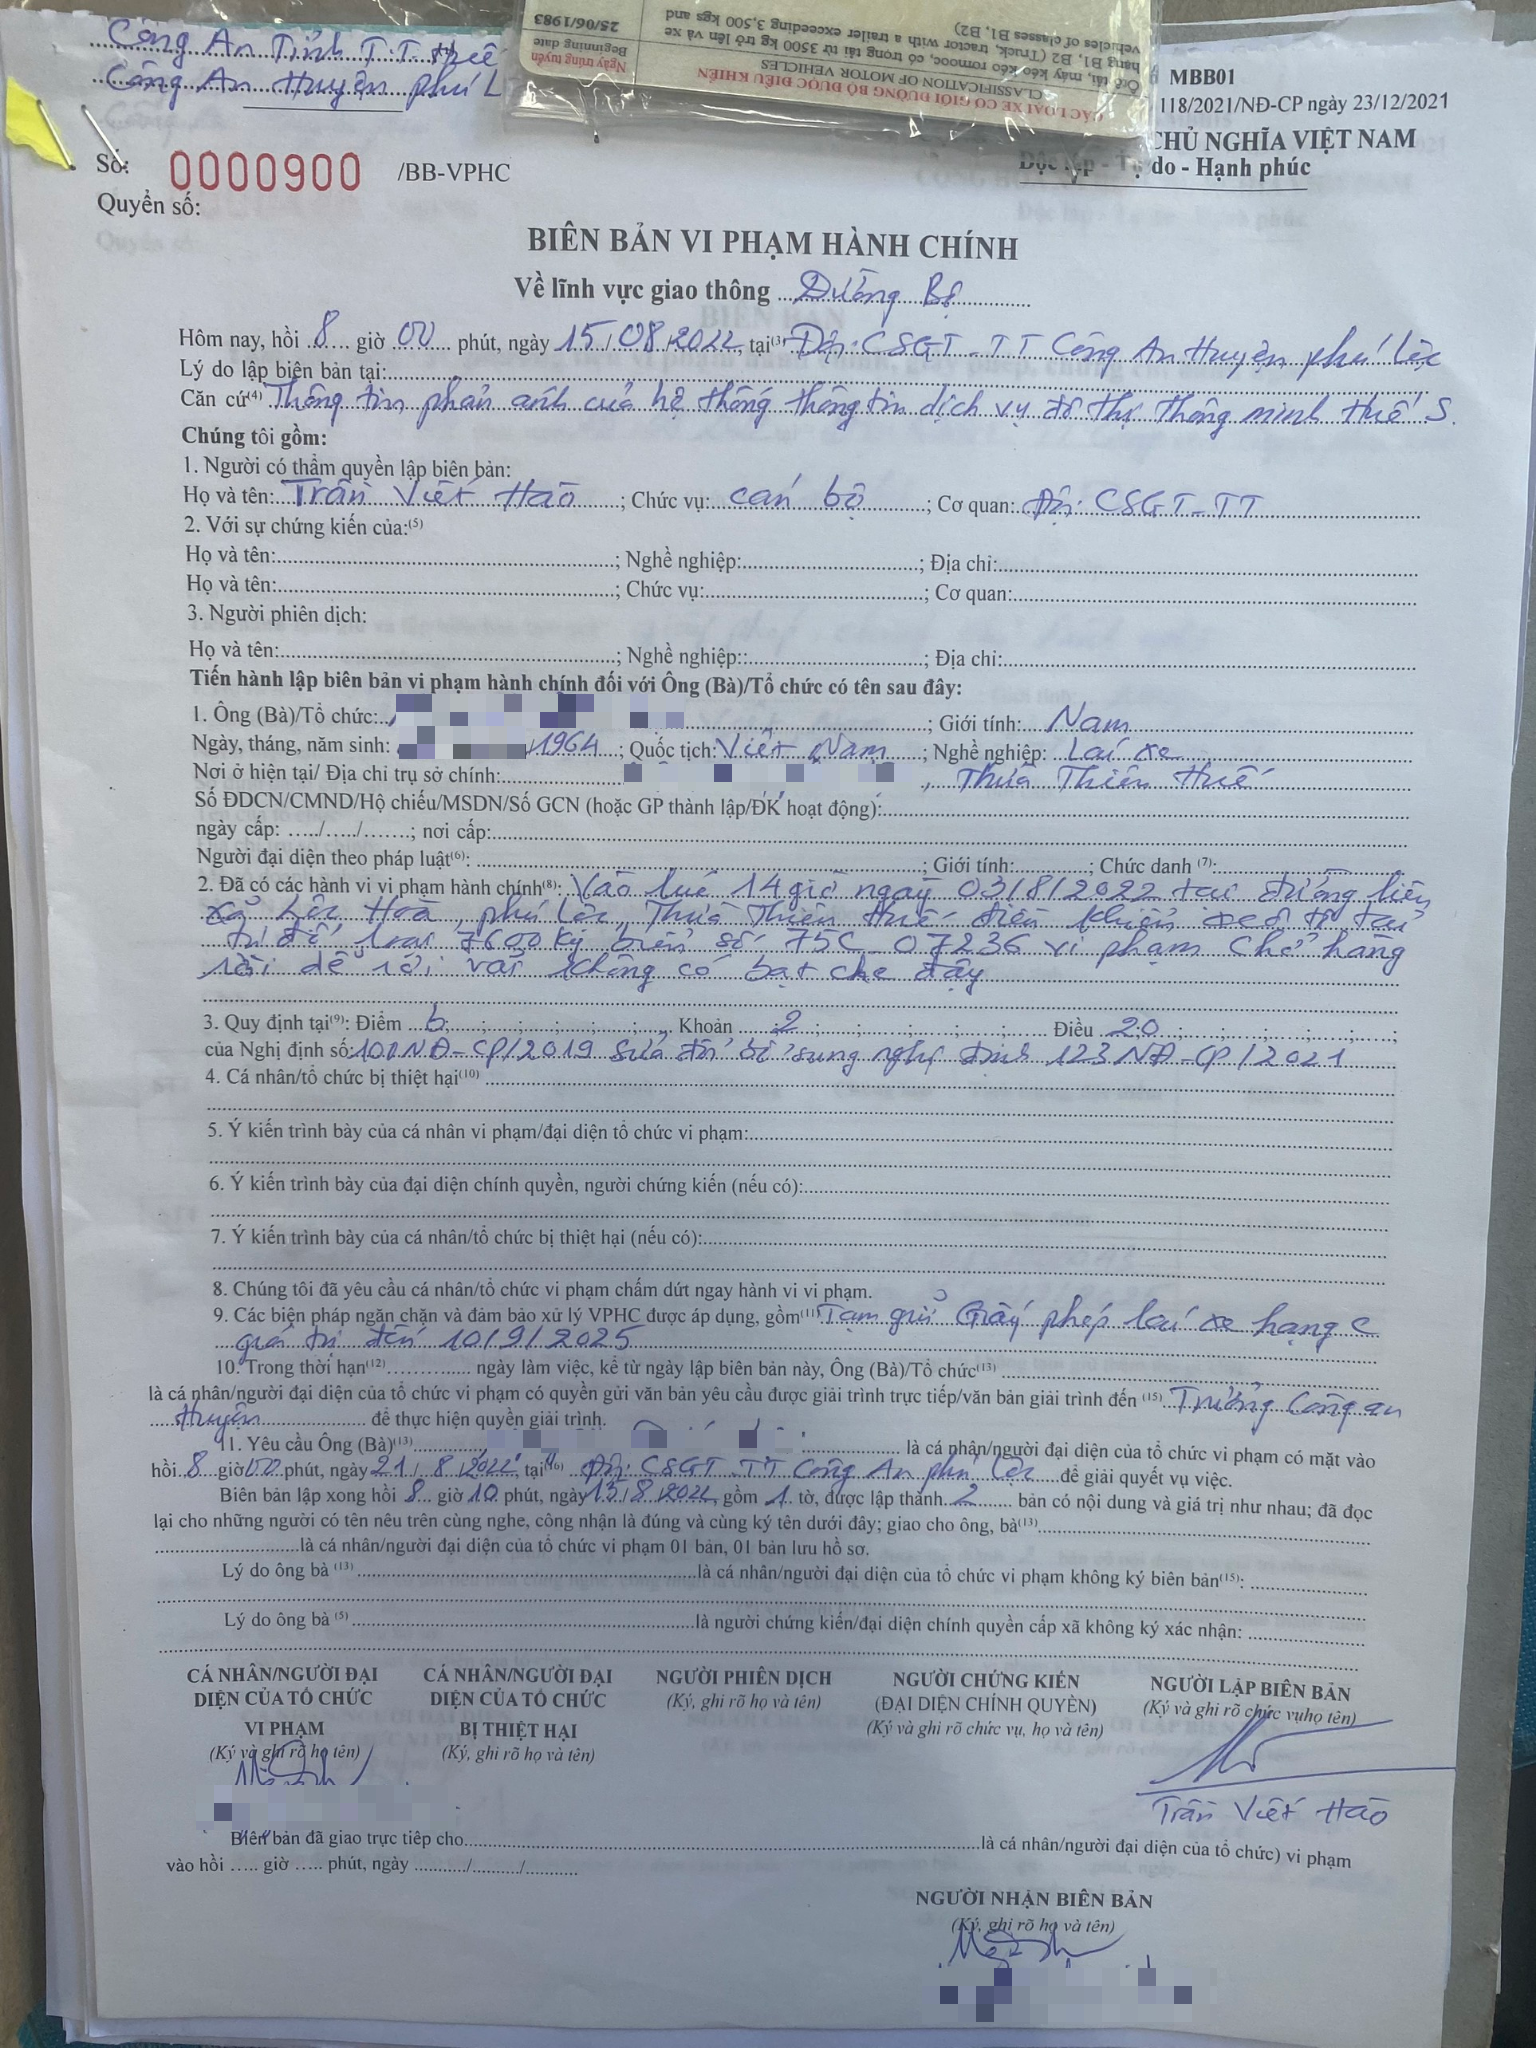 Công An Tỉnh T.T. Huế
Công An Huyện phú L
25/06/1983
Beginning date
Ngày trúng tuyển
CÁC LOẠI XE CƠ GIỚI ĐƯỜNG BỘ ĐƯỢC ĐIỀU KHIỂN
CLASSIFICATION OF MOTOR VEHICLES
Ô tô tải, máy kéo kéo rơmooc, có trọng tải từ 3500 kg trở lên và xe
hạng B1, B2 (Truck, tractor with a trailer exceeding 3,500 kgs and
vehicles of classes B1, B2)
MBB01
118/2021/NĐ-CP ngày 23/12/2021
CHỦ NGHĨA VIỆT NAM
Độc lập - Tự do - Hạnh phúc
Số: 0000900 /BB-VPHC
Quyển số:
BIÊN BẢN VI PHẠM HÀNH CHÍNH
Về lĩnh vực giao thông Đường Bộ
Hôm nay, hồi 8 giờ 00 phút, ngày 15/08/2022, tại(3) Đội CSGT-TT Công An Huyện phú Lộc
Lý do lập biên bản tại:
Căn cứ(4) Thông tin phản ánh của hệ thống thông tin dịch vụ đô thị thông minh Huế S.
Chúng tôi gồm:
1. Người có thẩm quyền lập biên bản:
Họ và tên: Trần Viết Hào; Chức vụ: cán bộ; Cơ quan: Đội CSGT-TT
2. Với sự chứng kiến của:(5)
Họ và tên: ; Nghề nghiệp: ; Địa chỉ:
Họ và tên: ; Chức vụ: ; Cơ quan:
3. Người phiên dịch:
Họ và tên: ; Nghề nghiệp:: ; Địa chỉ:
Tiến hành lập biên bản vi phạm hành chính đối với Ông (Bà)/Tổ chức có tên sau đây:
1. Ông (Bà)/Tổ chức: ; Giới tính: Nam
Ngày, tháng, năm sinh: /1964; Quốc tịch: Việt Nam; Nghề nghiệp: Lái xe
Nơi ở hiện tại/ Địa chỉ trụ sở chính: , Thừa Thiên Huế
Số ĐDCN/CMND/Hộ chiếu/MSDN/Số GCN (hoặc GP thành lập/ĐK hoạt động):
ngày cấp: …../…../…….; nơi cấp:
Người đại diện theo pháp luật(6): ; Giới tính: ; Chức danh (7):
2. Đã có các hành vi vi phạm hành chính(8): Vào lúc 14 giờ ngày 03/8/2022 tại đường liên
xã Lộc Hoà, phú Lộc, Thừa Thiên Huế điều khiển xe ô tô tải
tự đổ loại 7600 kg biển số 75C-07236 vi phạm Chở hàng
rời dễ rơi vãi không có bạt che đậy
3. Quy định tại(9): Điểm b ; Khoản 2 ; Điều 20
của Nghị định số: 100NĐ-CP/2019 sửa đổi bổ sung nghị định 123NĐ-CP/2021
4. Cá nhân/tổ chức bị thiệt hại(10)
5. Ý kiến trình bày của cá nhân vi phạm/đại diện tổ chức vi phạm:
6. Ý kiến trình bày của đại diện chính quyền, người chứng kiến (nếu có):
7. Ý kiến trình bày của cá nhân/tổ chức bị thiệt hại (nếu có):
8. Chúng tôi đã yêu cầu cá nhân/tổ chức vi phạm chấm dứt ngay hành vi vi phạm.
9. Các biện pháp ngăn chặn và đảm bảo xử lý VPHC được áp dụng, gồm(11) Tạm giữ Giấy phép lái xe hạng C
giá trị đến 10/9/2025
10. Trong thời hạn(12) ngày làm việc, kể từ ngày lập biên bản này, Ông (Bà)/Tổ chức(13)
là cá nhân/người đại diện của tổ chức vi phạm có quyền gửi văn bản yêu cầu được giải trình trực tiếp/văn bản giải trình đến (15) Trưởng Công an
Huyện để thực hiện quyền giải trình.
11. Yêu cầu Ông (Bà)(13) là cá nhân/người đại diện của tổ chức vi phạm có mặt vào
hồi 8 giờ 00 phút, ngày 21/8/2022 tại(16) Đội CSGT-TT Công An phú Lộc để giải quyết vụ việc.
Biên bản lập xong hồi 8 giờ 10 phút, ngày 15/8/2022, gồm 1 tờ, được lập thành 2 bản có nội dung và giá trị như nhau; đã đọc
lại cho những người có tên nêu trên cùng nghe, công nhận là đúng và cùng ký tên dưới đây; giao cho ông, bà(13)
là cá nhân/người đại diện của tổ chức vi phạm 01 bản, 01 bản lưu hồ sơ.
Lý do ông bà (13) là cá nhân/người đại diện của tổ chức vi phạm không ký biên bản(15):
Lý do ông bà (5) là người chứng kiến/đại diện chính quyền cấp xã không ký xác nhận:
CÁ NHÂN/NGƯỜI ĐẠI DIỆN CỦA TỔ CHỨC VI PHẠM
(Ký và ghi rõ họ tên)
CÁ NHÂN/NGƯỜI ĐẠI DIỆN CỦA TỔ CHỨC BỊ THIỆT HẠI
(Ký, ghi rõ họ và tên)
NGƯỜI PHIÊN DỊCH
(Ký, ghi rõ họ và tên)
NGƯỜI CHỨNG KIẾN
(ĐẠI DIỆN CHÍNH QUYỀN)
(Ký và ghi rõ chức vụ, họ và tên)
NGƯỜI LẬP BIÊN BẢN
(Ký và ghi rõ chức vụhọ tên)
Trần Viết Hào
Biên bản đã giao trực tiếp cho là cá nhân/người đại diện của tổ chức) vi phạm
vào hồi ….. giờ ….. phút, ngày ........../........../..........
NGƯỜI NHẬN BIÊN BẢN
(Ký, ghi rõ họ và tên)